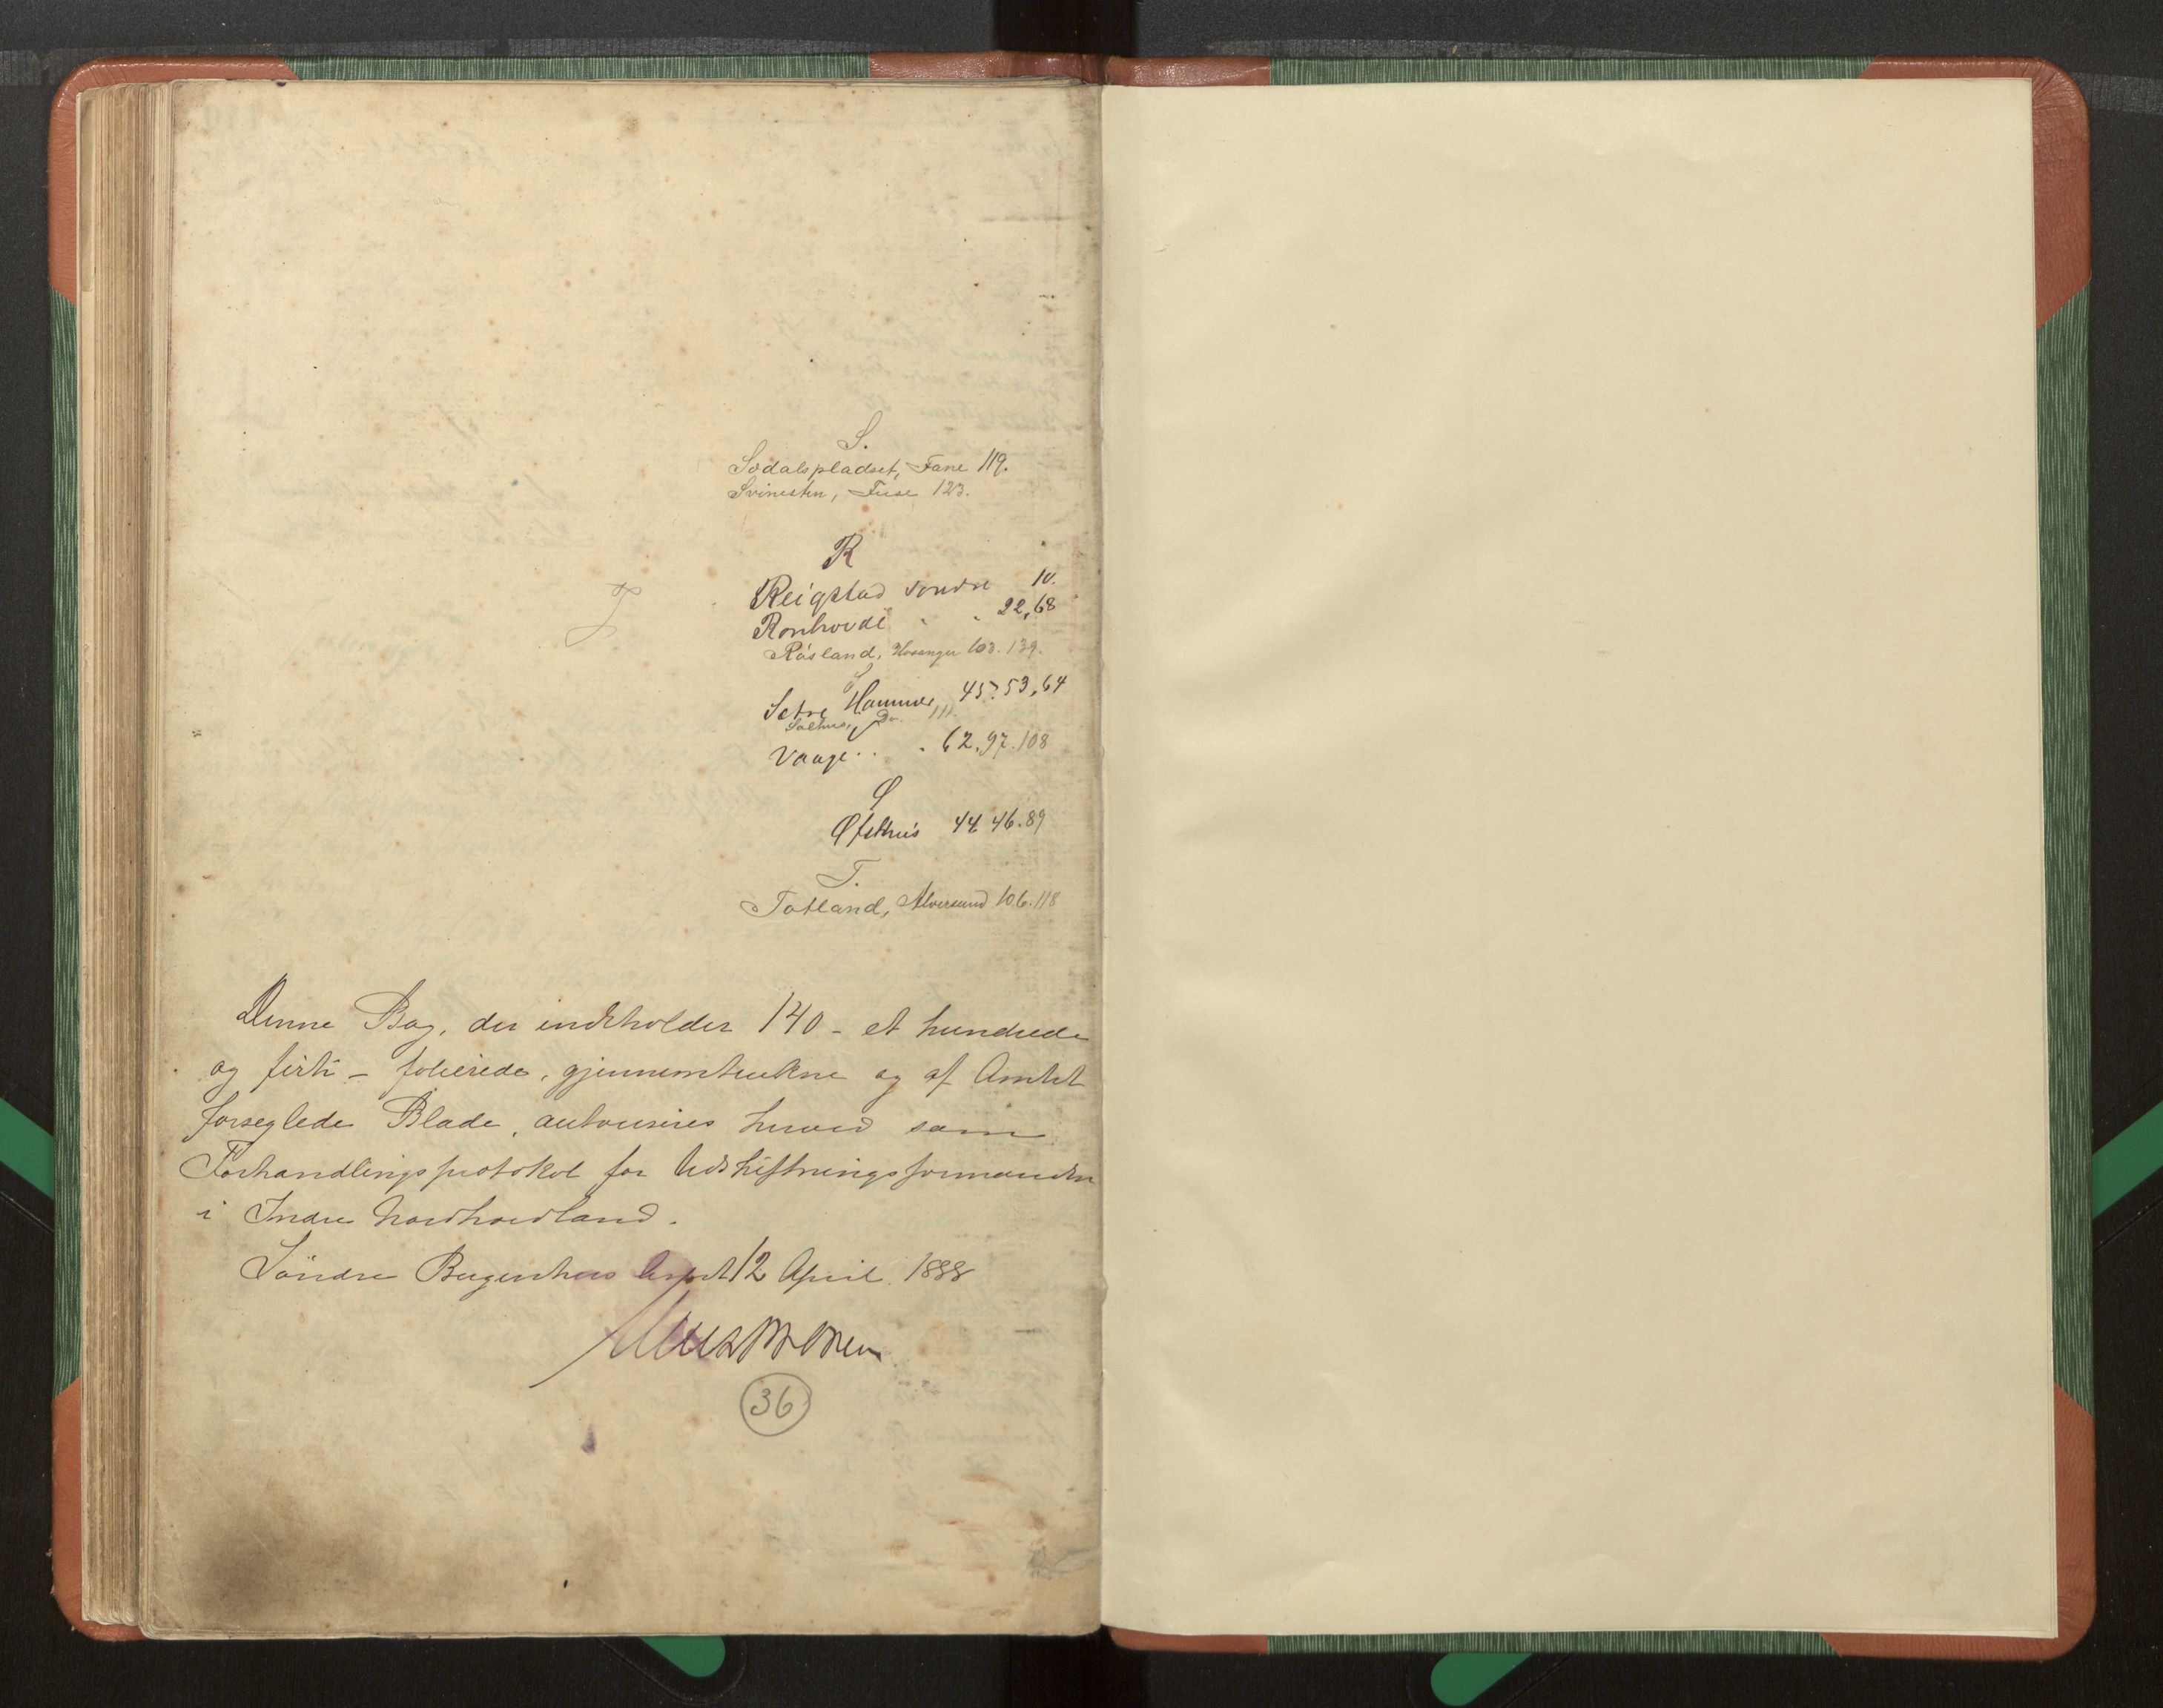 S.
Sødalspladset, Fane 119.
Svinesten, Fuse 123.
R
Reigstad søndre 10.
Ronhovde " " 22,68
Røsland, Hosanger 103. 139.
S
Sætre Hammer 45. 53, 64
Salhus, Do 111.
Vaage . . . 62, 97. 108
Ø
Øfsthus 44 46. 89
T.
Totland, Alversund 106. 118
Denne Bog, der indeholder 140 - et hundrede
og firti - folierede, gjennemtrukne og af Amtet
forseglede Blade, autoriseres herved som
Forhandlingsprotokol for Udskiftningsformanden
i Indre Nordhordland.
Søndre Bergenhus Amt 12 April 1888
36